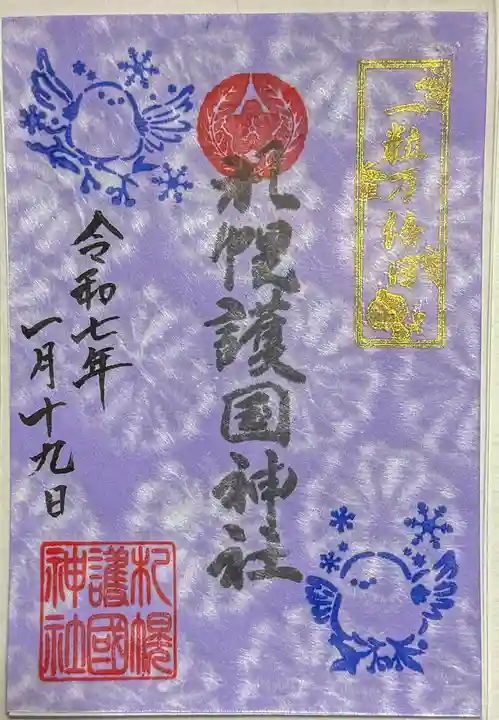 一粒万倍日
札幌護国神社
令和七年
一月十九日
札幌
護國
神社